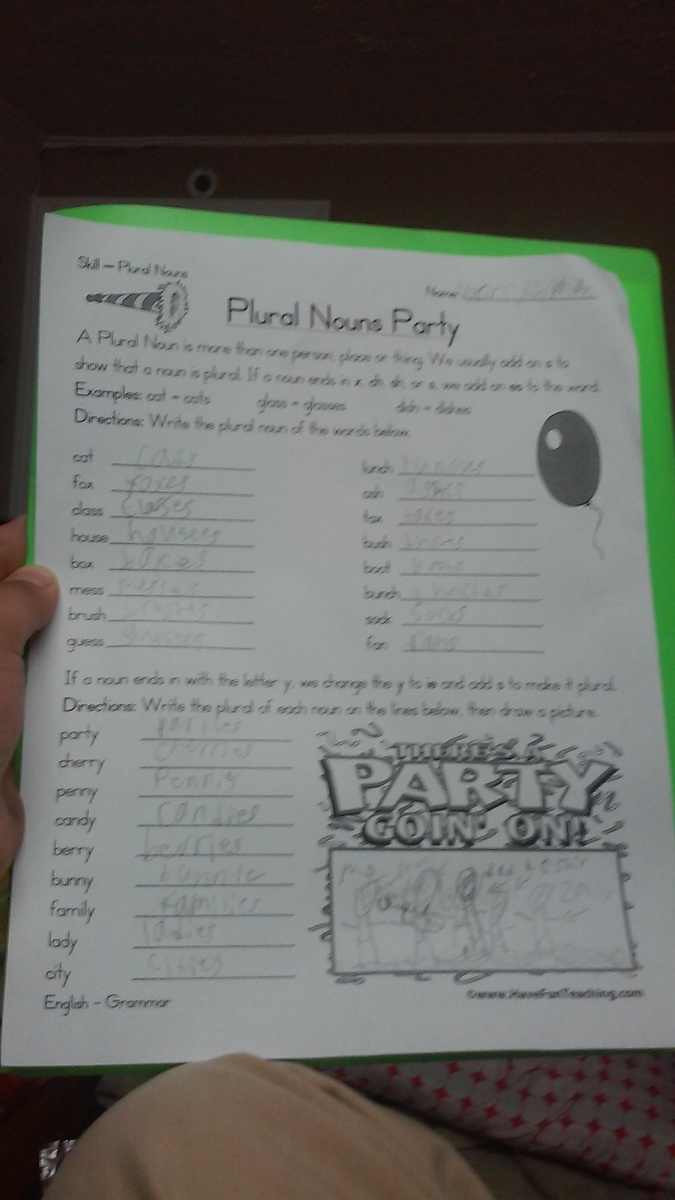 Skill - Plural Nouns
Name
Plural Nouns Party
A Plural Noun is more than one person, place or thing. We usually add an s to
show that a noun is plural. If a noun ends in x, ch, sh, or s, we add an es to the word.
Examples: cat = cats glass = glasses dish = dishes
Directions: Write the plural noun of the words below.
cat
fox foxes
class classes
house housees
box boxes
mess messes
brush brushes
guess guesses
lunch
ash
tax taxes
bush
boot
bunch
sock socks
fan fans
If a noun ends in with the letter y, we change the y to ie and add s to make it plural.
Directions: Write the plural of each noun on the lines below, then draw a picture.
party parties
cherry cherries
penny Penny
candy candies
berry berries
bunny bunnie
family families
lady ladies
city cities
THERE'S A
PARTY
GOIN' ON!
English - Grammar
©www.HaveFunTeaching.com